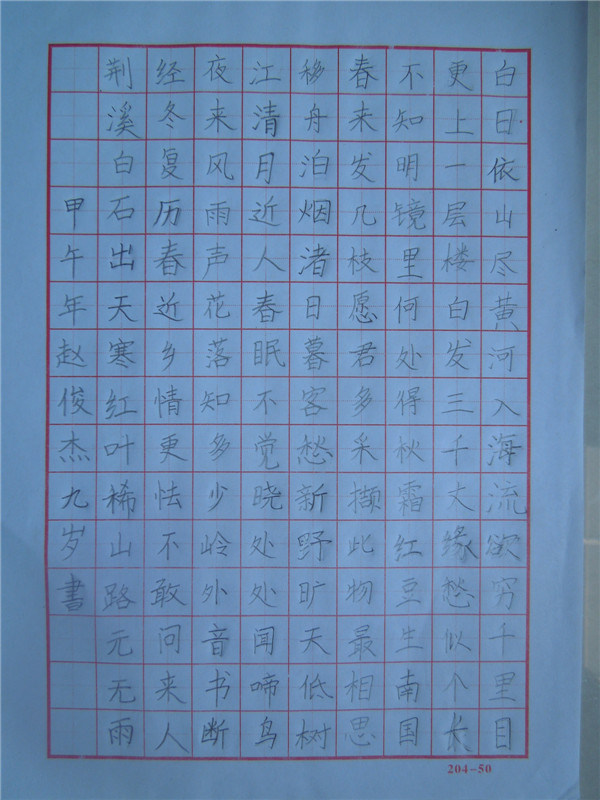 白日依山尽黄河入海流欲穷千里目
更上一层楼白发三千丈缘愁似个长
不知明镜里何处得秋霜红豆生南国
春来发几枝愿君多采撷此物最相思
移舟泊烟渚日暮客愁新野旷天低树
江清月近人春眠不觉晓处处闻啼鸟
夜来风雨声花落知多少岭外音书断
经冬复历春近乡情更怯不敢问来人
荆溪白石出天寒红叶稀山路元无雨
甲午年赵俊杰九岁書
204-50